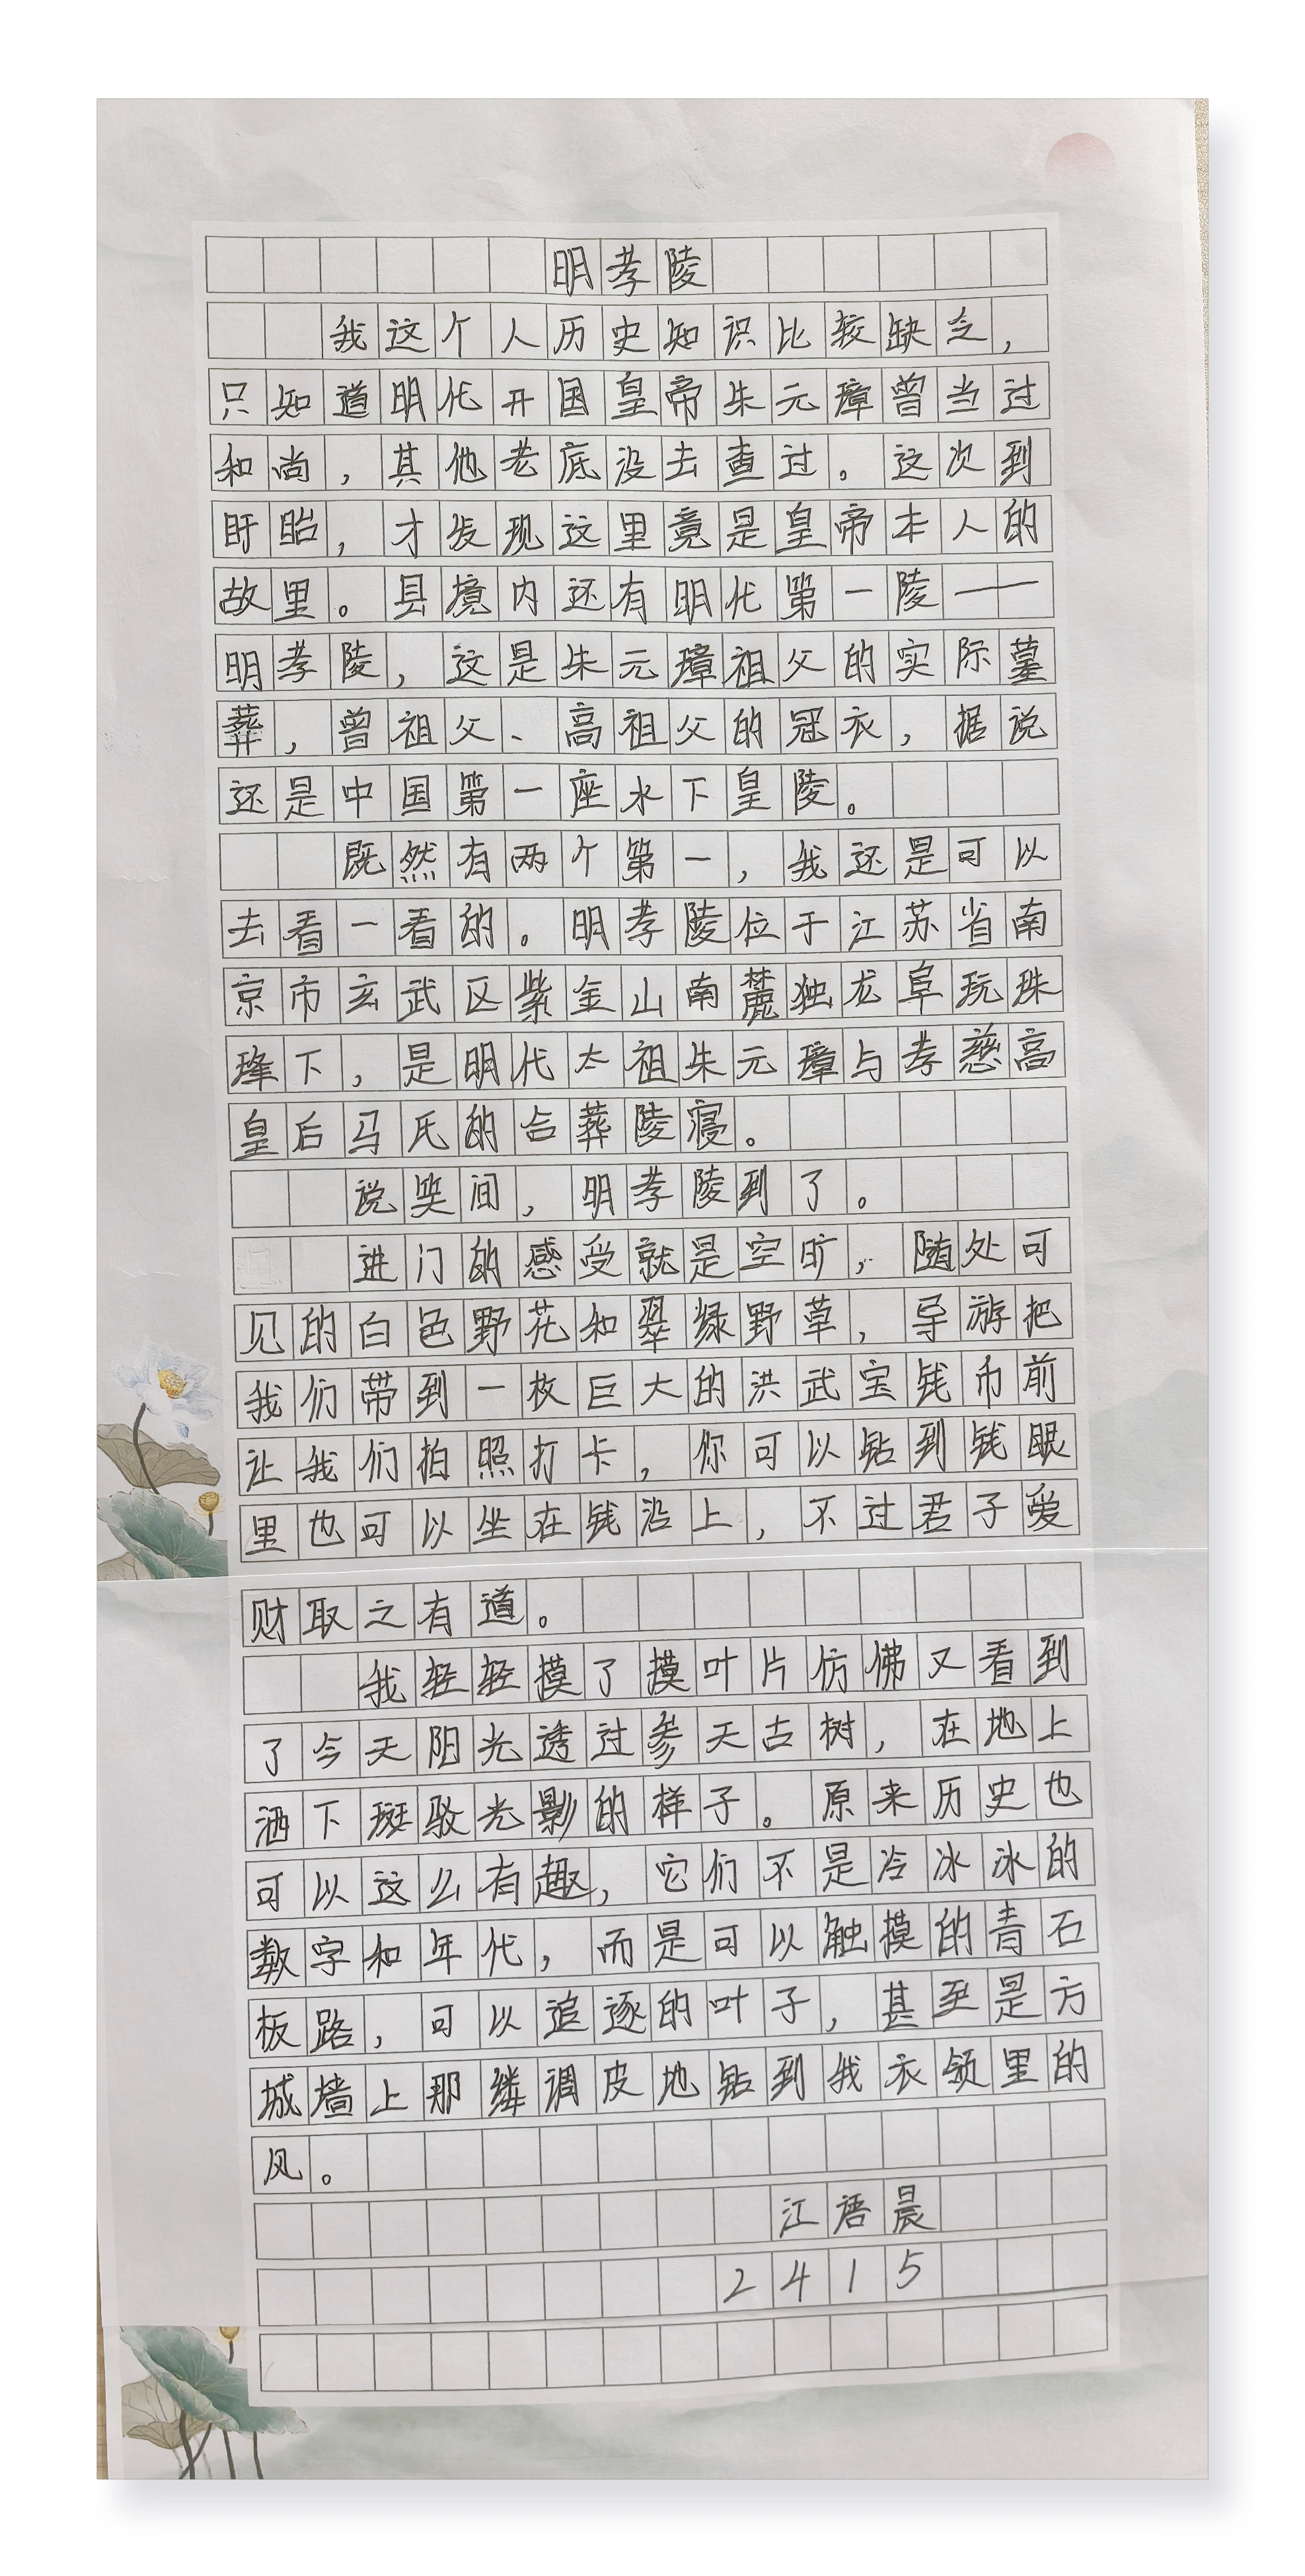 明孝陵
我这个人历史知识比较缺乏，
只知道明代开国皇帝朱元璋曾当过
和尚，其他老底没去查过。这次到
盱眙，才发现这里竟是皇帝本人的
故里。县境内还有明代第一陵——
明孝陵，这是朱元璋祖父的实际墓
葬，曾祖父、高祖父的冠衣，据说
还是中国第一座水下皇陵。
既然有两个第一，我还是可以
去看一看的。明孝陵位于江苏省南
京市玄武区紫金山南麓独龙阜玩珠
峰下，是明代太祖朱元璋与孝慈高
皇后马氏的合葬陵寝。
说笑间，明孝陵到了。
进门的感受就是空旷，随处可
见的白色野花和翠绿野草，导游把
我们带到一枚巨大的洪武宝钱币前
让我们拍照打卡，你可以钻到钱眼
里也可以坐在钱沿上，不过君子爱
财取之有道。
我轻轻摸了摸叶片仿佛又看到
了今天阳光透过参天古树，在地上
洒下斑驳光影的样子。原来历史也
可以这么有趣，它们不是冷冰冰的
数字和年代，而是可以触摸的青石
板路，可以追逐的叶子，甚至是方
城墙上那缕调皮地钻到我衣领里的
风。
江语晨
2415